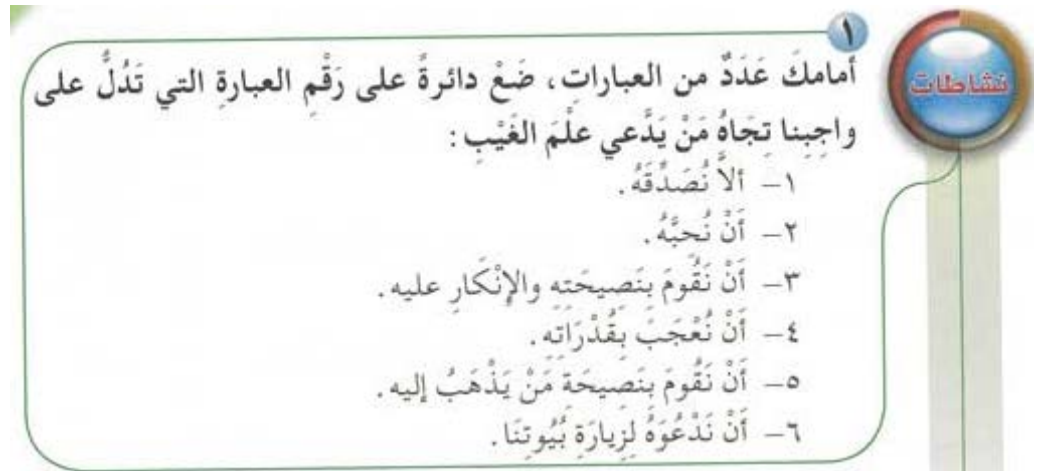 ١
نشاطات
أمامكَ عَدَدٌ من العبارات، ضَعْ دائرةً على رَقْمِ العبارةِ التي تَدُلُّ على
واجِبِنا تِجَاهُ مَنْ يَدَّعي عِلْمَ الغَيْبِ:
١- ألاَّ نُصَدِّقَهُ.
٢- أَنْ نُحِبَّهُ.
٣- أَنْ نَقُومَ بِنَصِيحَتِهِ والإِنْكَارِ عليه.
٤- أَنْ نُعْجَبَ بِقُدْرَاتِهِ.
٥- أَنْ نَقُومَ بِنَصِيحَةِ مَنْ يَذْهَبُ إليه.
٦- أَنْ نَدْعُوَهُ لِزِيارَةِ بُيُوتِنَا.